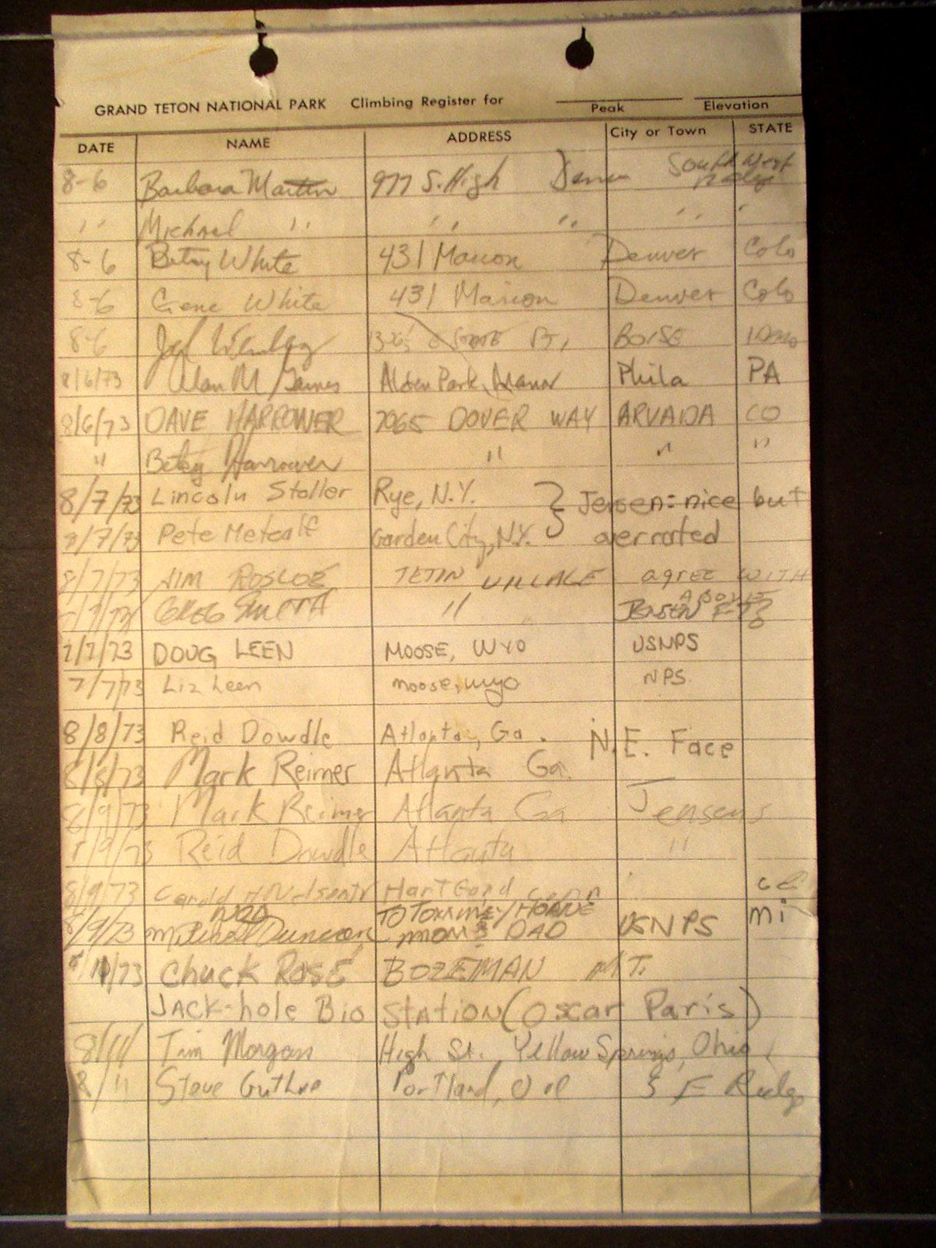 GRAND TETON NATIONAL PARK Climbing Register for
Peak Elevation
DATE NAME ADDRESS City or Town STATE
8-6 Barbara Martin 977 S. High Denver Southwest Ridge
" Michael " " " " "
8-6 Betsy White 431 Marion Denver Colo
8-6 Gene White 431 Marion Denver Colo
8-6 BOISE IDAHO
8/6/73 Alan M. James Alden Park Manor Phila PA
8/6/73 DAVE HARROWER 7065 DOVER WAY ARVADA CO
" Betsy Harrower " " "
8/7/73 Lincoln Stoller Rye, N.Y. } Jensen: nice but
8/7/73 Pete Metcalf Garden City, N.Y. overrated
8/7/73 JIM ROSCOE TETIN VILLAGE agree WITH
ABOVE
GREG SMITH " JENSEN
7/7/73 DOUG LEEN MOOSE, WYO USNPS
7/7/73 Liz Leen moose, wyo NPS
8/8/73 Reid Dowdle Atlanta, Ga. N.E. Face
8/8/73 Mark Reimer Atlanta Ga.
8/9/73 Mark Reimer Atlanta Ga Jensens
8/9/73 Reid Dowdle Atlanta "
8/9/73 Hartford conn
8/9/73 Duncan MOM & DAD USNPS mi
10/73 Chuck ROSE BOZEMAN MT.
JACK-hole Bio STATION (Oscar Paris)
8/11 Tim Morgan High St., Yellow Springs, Ohio
8/11 Steve Guthrie Portland, Ore S E Ridge